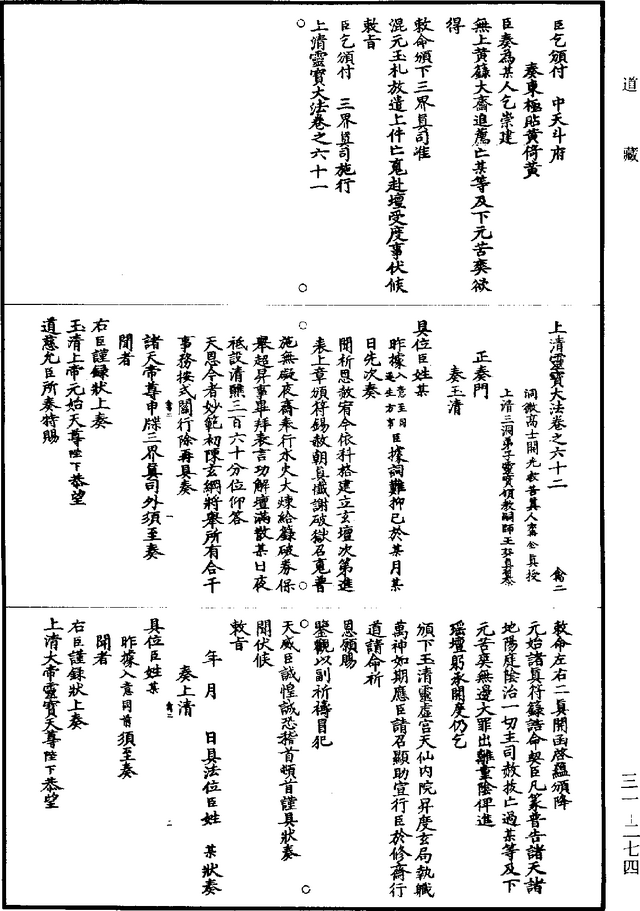 道藏
臣乞頒付　中天斗府
奏東極貼黃倚黃
臣奏為某人乞崇建
無上黃籙大齋追薦亡某等及下元苦爽欲
得
敕命頒下三界真司准
混元玉札放遣上件亡䰟赴壇受度事伏候
敕旨
臣乞頒付　三界真司施行
上清靈寶大法卷之六十一
上清靈寶大法卷之六十二
洞微高士開光救苦真人甯全真授
上清三洞弟子靈寶領教嗣師王契真纂
正奏門
奏玉清
具位臣姓某
昨據入意至因臣據詞難抑已於某月某
日先次奏
聞祈恩赦宥今依科格建立玄壇次第進
表上章頒符錫赦朝真懺謝破獄召䰟普
施無礙夜齋奉行水火大煉給籙破券保
舉超昇事畢拜表言功解壇滿散某日夜
祗設清醮三百六十分位仰答
天恩令者妙範初陳玄綱將舉所有合干
事務按式閣行除再具奏
諸天帝尊申牒三界真司外須至奏
聞者
右臣謹錄狀上奏
玉清上帝元始天尊陛下恭望
道慈允臣所奏特賜
敕命左右二真開函啓蘊頒降
元始諸真符籙誥命契臣凡篆普告諸天諸
地陽庭陰治一切主司赦拔亡過某等及下
元苦爽無邊大罪出離重陰俾進
瑤壇躬承開度仍乞
頒下玉清靈虛宮天仙內院昇度玄局執職
萬神如期應臣請召顯助宣行臣於修齋行
道請命祈
恩願賜
鑒觀以副祈禱冒犯
天威臣誠惶誠恐稽首頓首謹具狀奏
聞伏候
敕旨
年　月　日具法位臣姓　某狀奏
奏上清
具位臣姓某
昨據入意同前須至奏
聞者
右臣謹錄狀上奏
上清大帝靈寶天尊陛下恭望
三一-二七四